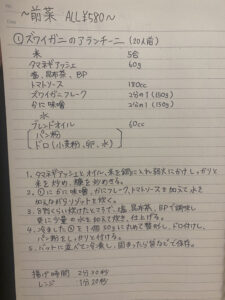 〜前菜 ALL¥580〜
① ズワイガニのアランチーニ (20人前)
米 5合
タマネギアッシェ 60g
塩、昆布茶、BP
トマトソース 180cc
ズワイガニフレーク 2分の1 (150g)
かに味噌 2分の1 (150g)
水
ブレンドオイル 60cc
パン粉
ドロ (小麦粉、卵、水)
1. タマネギアッシェとオイル、米を鍋に入れ
米を炒め、糖を炒める。
2. ①にかに味噌、かにフレーク、トマトソースを加えて水を
加えながらリゾットを炊く。
3. 8割くらい炊けたところで、塩、昆布茶、BPで調味し
更に少量の水を加えて炊き、仕上げる。
4. 冷ました③を1個50gに丸めて整形し、ドロ付けし、
パン粉をしっかりと付ける。
5. バットに並べて冷凍し、固まったら袋などで保存。
揚げ時間 2分30秒
レンジ 1分20秒